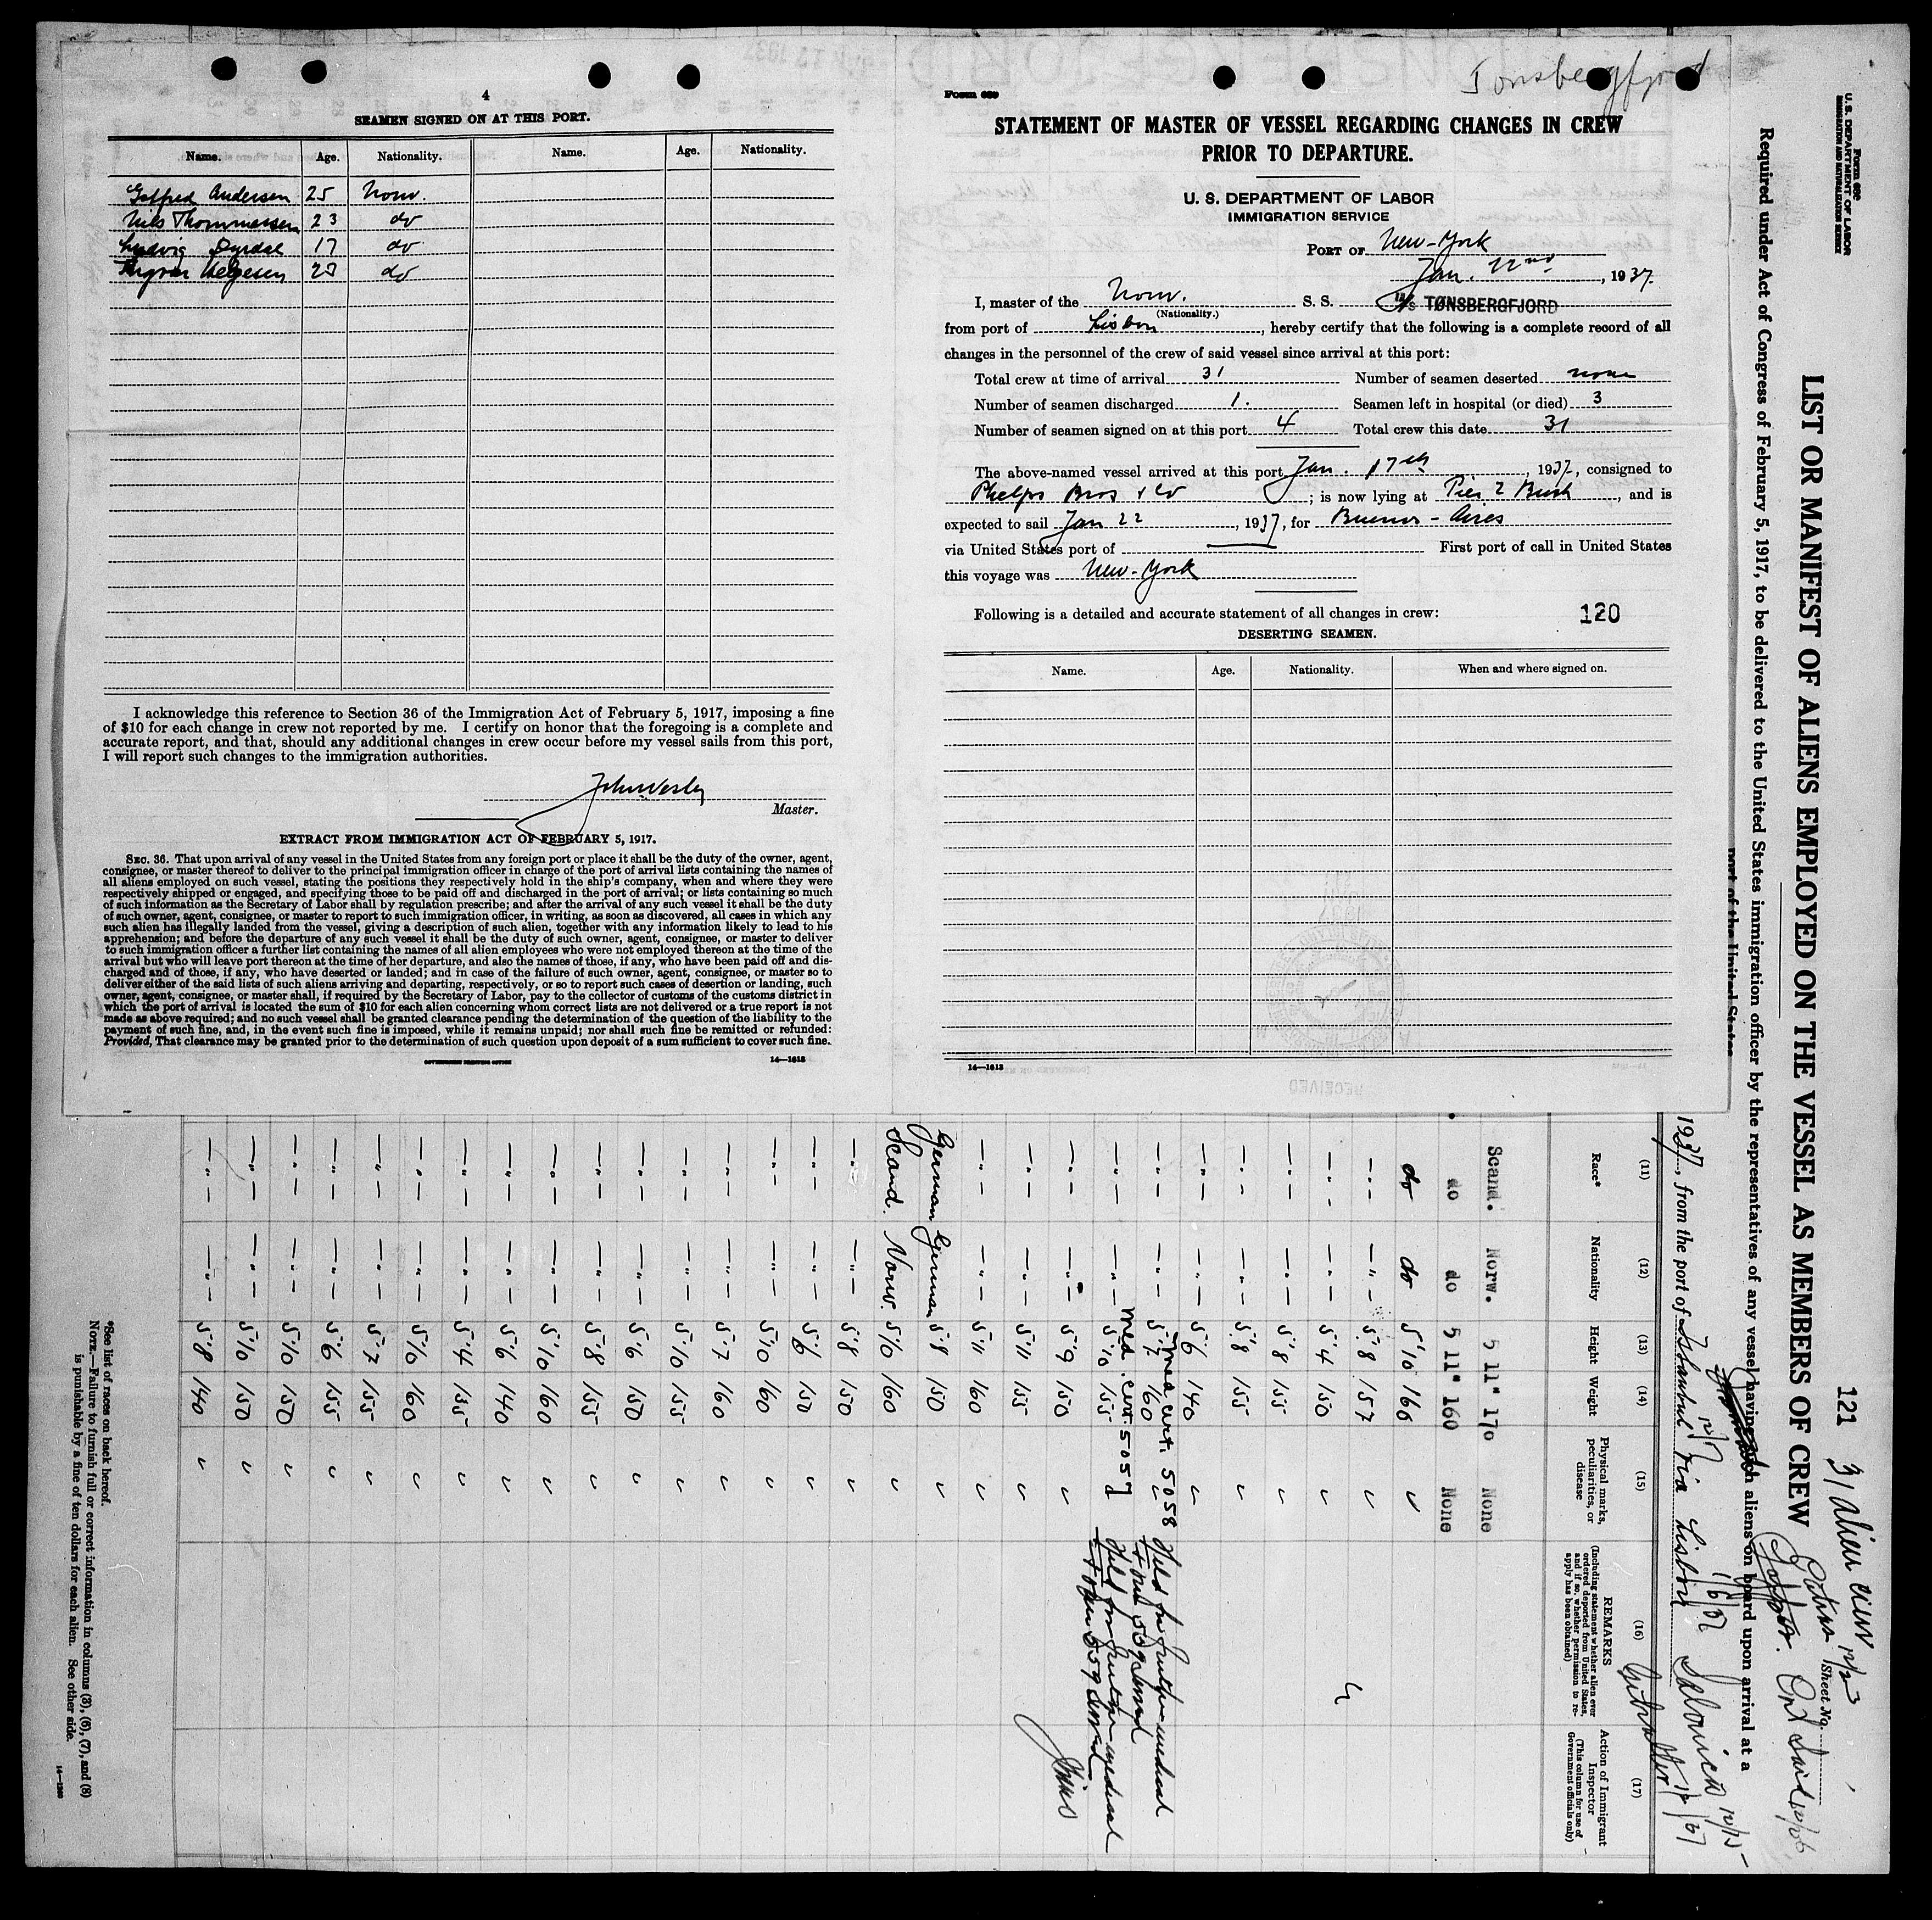 4
SEAMEN SIGNED ON AT THIS PORT.
Name. Age. Nationality. Name. Age. Nationality.
Andersen 25 Norw.
Nils Thommassen 23 do
Ludvig 17 do
Helgesen do
I acknowledge this reference to Section 36 of the Immigration Act of February 5, 1917, imposing a fine
of $10 for each change in crew not reported by me. I certify on honor that the foregoing is a complete and
accurate report, and that, should any additional changes in crew occur before my vessel sails from this port,
I will report such changes to the immigration authorities.
Master.
EXTRACT FROM IMMIGRATION ACT OF FEBRUARY 5, 1917.
SEC. 36. That upon arrival of any vessel in the United States from any foreign port or place it shall be the duty of the owner, agent,
consignee, or master thereof to deliver to the principal immigration officer in charge of the port of arrival lists containing the names of
all aliens employed on such vessel, stating the positions they respectively hold in the ship's company, when and where they were
respectively shipped or engaged, and specifying those to be paid off and discharged in the port of arrival; or lists containing so much
of such information as the Secretary of Labor shall by regulation prescribe; and after the arrival of any such vessel it shall be the duty
of such owner, agent, consignee, or master to report to such immigration officer, in writing, as soon as discovered, all cases in which any
such alien has illegally landed from the vessel, giving a description of such alien, together with any information likely to lead to his
apprehension; and before the departure of any such vessel it shall be the duty of such owner, agent, consignee, or master to deliver
to such immigration officer a further list containing the names of all alien employees who were not employed thereon at the time of the
arrival but who will leave port thereon at the time of her departure, and also the names of those, if any, who have been paid off and dis-
charged and of those, if any, who have deserted or landed; and in case of the failure of such owner, agent, consignee, or master so to
deliver either of the said lists of such aliens arriving and departing, respectively, or so to report such cases of desertion or landing, such
owner, agent, consignee, or master shall, if required by the Secretary of Labor, pay to the collector of customs of the customs district in
which the port of arrival is located the sum of $10 for each alien concerning whom correct lists are not delivered or a true report is not
made as above required; and no such vessel shall be granted clearance pending the determination of the question of the liability to the
payment of such fine, and, in the event such fine is imposed, while it remains unpaid; nor shall such fine be remitted or refunded:
Provided, That clearance may be granted prior to the determination of such question upon deposit of a sum sufficient to cover such fine.
GOVERNMENT PRINTING OFFICE 14—1613
Tonsbergfjord
Form 689
STATEMENT OF MASTER OF VESSEL REGARDING CHANGES IN CREW
PRIOR TO DEPARTURE.
U. S. DEPARTMENT OF LABOR
IMMIGRATION SERVICE
PORT OF New-York
Jan. 22nd, 1937.
I, master of the Norw. S. S. M/S TØNSBERGFJORD
(Nationality.)
from port of Lisbon, hereby certify that the following is a complete record of all
changes in the personnel of the crew of said vessel since arrival at this port:
Total crew at time of arrival 31 Number of seamen deserted none
Number of seamen discharged 1. Seamen left in hospital (or died) 3
Number of seamen signed on at this port 4 Total crew this date 31
The above-named vessel arrived at this port Jan. 17th, 1937, consigned to
Phelps Bros & Co; is now lying at Pier 2 Bush, and is
expected to sail Jan 22, 1937, for Buenos-Aires
via United States port of — First port of call in United States
this voyage was New-York
Following is a detailed and accurate statement of all changes in crew: 120
DESERTING SEAMEN.
Name. Age. Nationality. When and where signed on.
14—1613
RECEIVED
Form 680
U. S. DEPARTMENT OF LABOR
IMMIGRATION AND NATURALIZATION SERVICE
121 31 alien crew
Sheet No.
LIST OR MANIFEST OF ALIENS EMPLOYED ON THE VESSEL AS MEMBERS OF CREW
Required under Act of Congress of February 5, 1917, to be delivered to the United States immigration officer by the representatives of any vessel having such aliens on board upon arrival at a
port of the United States
1937, from the port of Istanbul via Lisbon
(11) (12) (13) (14) (15) (16) (17)
Race* Nationality Height Weight Physical marks, peculiarities, or disease
REMARKS (Including statement whether alien ever ordered deported from United States, and if so, whether permission to re-apply has been obtained)
Action of Immigrant Inspector (This column for use of Government officials only)
Scand. Norw. 5 11" 170 None
do do 5 11" 160 None
do do 5 10 166 "
—"— —"— 5 8 157 "
—"— —"— 5 4 150 "
—"— —"— 5 8 155 "
—"— —"— 5 8 155 "
—"— —"— 5 6 140 "
—"— —"— 5 7 160 " Med cert. 5058 Held for
—"— —"— 5 10 155 Med. cert. 5057 Held for
—"— —"— 5 9 150 "
—"— —"— 5 11 155 "
—"— —"— 5 11 160 "
German German 5 8 150 "
Scand. Norw. 5 10 160 "
—"— —"— 5 8 150 "
—"— —"— 5 6 150 "
—"— —"— 5 10 160 "
—"— —"— 5 7 160 "
—"— —"— 5 10 155 "
—"— —"— 5 6 150 "
—"— —"— 5 8 155 "
—"— —"— 5 10 160 "
—"— —"— 5 6 140 "
—"— —"— 5 4 135 "
—"— —"— 5 10 160 "
—"— —"— 5 7 155 "
—"— —"— 5 6 155 "
—"— —"— 5 10 150 "
—"— —"— 5 10 150 "
—"— —"— 5 8 140 "
*See list of races on back hereof.
NOTE.—Failure to furnish full or correct information in columns (3), (6), (7), and (8)
is punishable by a fine of ten dollars for each alien. See other side.
14—1240